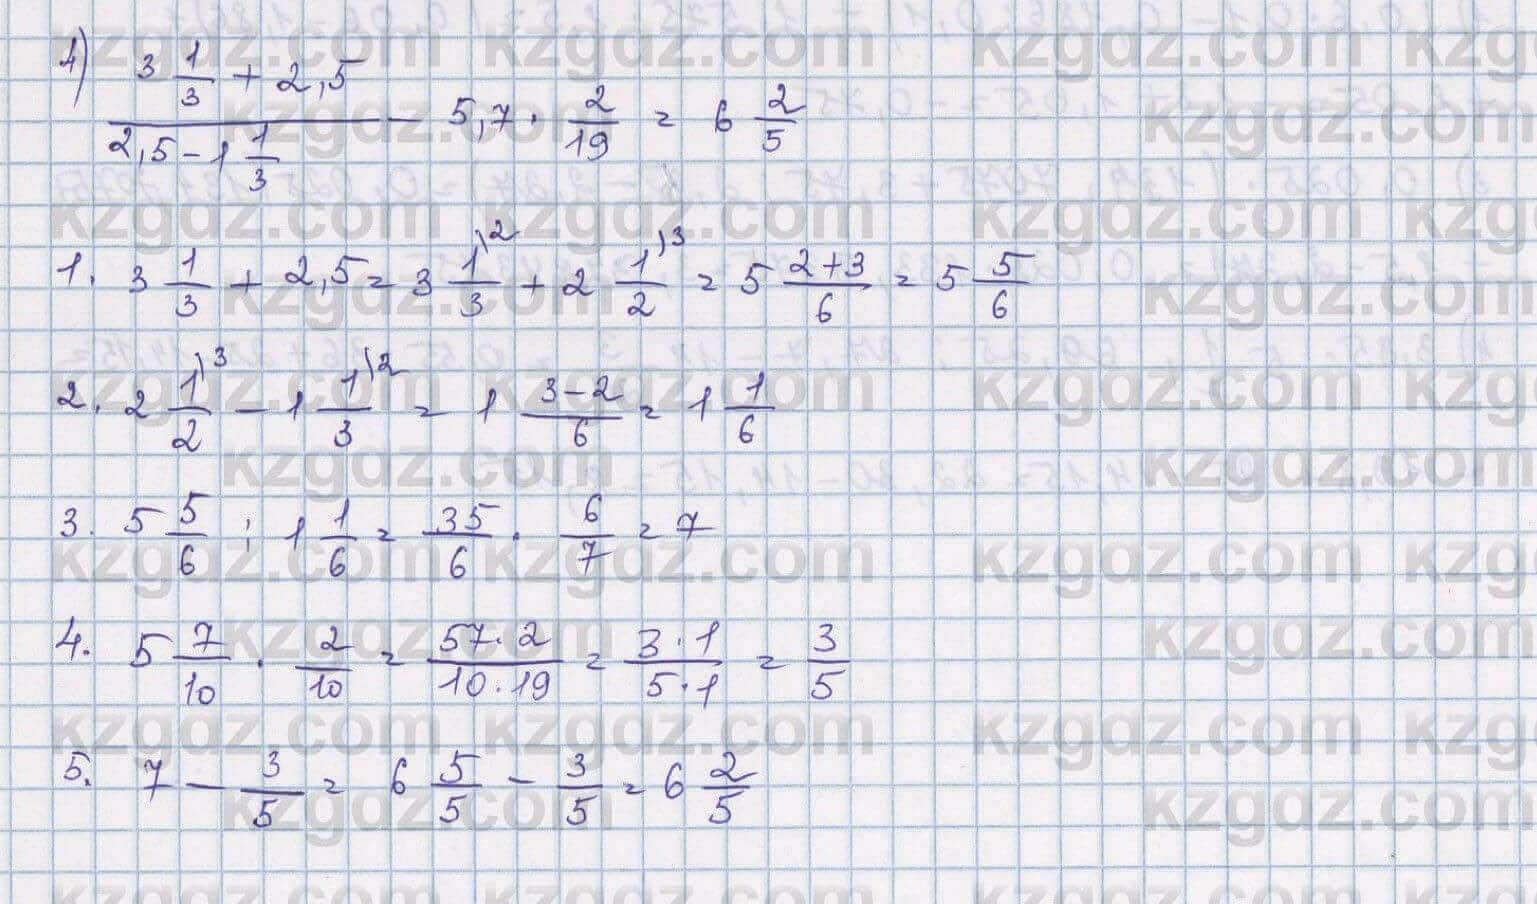 1) (3 1/3 + 2,5)/(2,5 - 1 1/3) - 5,7 · 2/19 = 6 2/5
1. 3 1/3 + 2,5 = 3 1/3\2 + 2 1/2\3 = 5 (2+3)/6 = 5 5/6
2. 2 1/2\3 - 1 1/3\2 = 1 (3-2)/6 = 1 1/6
3. 5 5/6 : 1 1/6 = 35/6 · 6/7 = 7
4. 5 7/10 · 2/10 = (57·2)/(10·19) = (3·1)/(5·1) = 3/5
5. 7 - 3/5 = 6 5/5 - 3/5 = 6 2/5
kzgdz.com